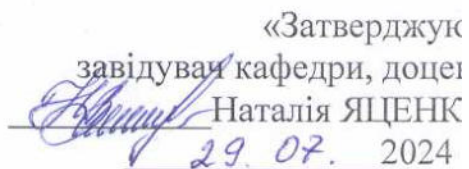 «Затверджую
завідувач кафедри, доцен
Наталія ЯЦЕНК
29. 07. 2024